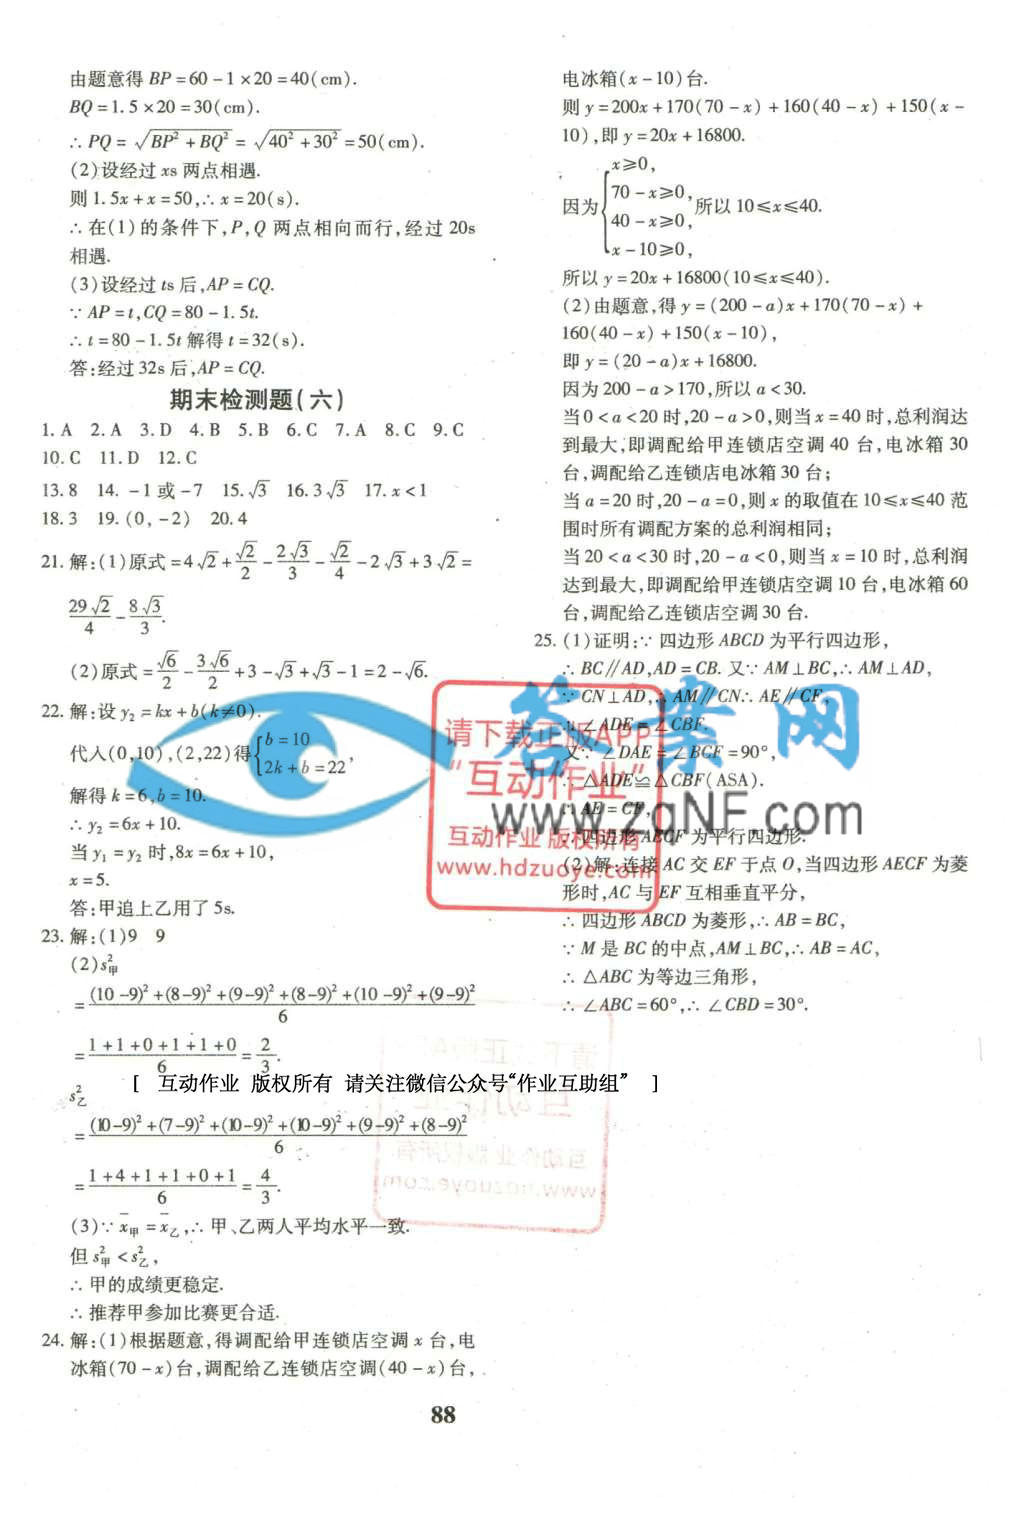 由题意得 BP=60-1×20=40(cm).
BQ=1.5×20=30(cm).
∴PQ=√(BP²+BQ²)=√(40²+30²)=50(cm).
(2)设经过xs两点相遇.
则1.5x+x=50,∴x=20(s).
∴在(1)的条件下,P,Q两点相向而行,经过20s
相遇.
(3)设经过ts后,AP=CQ.
∵AP=t,CQ=80-1.5t.
∴t=80-1.5t解得t=32(s).
答:经过32s后,AP=CQ.
期末检测题(六)
1.A 2.A 3.D 4.B 5.B 6.C 7.A 8.C 9.C
10.C 11.D 12.C
13.8 14.-1或-7 15.√3 16.3√3 17.x<1
18.3 19.(0,-2) 20.4
21.解:(1)原式=4√2+√2/2-2√3/3-√2/4-2√3+3√2=
29√2/4-8√3/3.
(2)原式=√6/2-3√6/2+3-√3+√3-1=2-√6.
22.解:设y₂=kx+b(k≠0).
代入(0,10),(2,22)得{b=10
2k+b=22,
解得k=6,b=10.
∴y₂=6x+10.
当y₁=y₂时,8x=6x+10,
x=5.
答:甲追上乙用了5s.
23.解:(1)9 9
(2)s²甲
=((10-9)²+(8-9)²+(9-9)²+(8-9)²+(10-9)²+(9-9)²)/6
=(1+1+0+1+1+0)/6=2/3.
[ 互动作业 版权所有 请关注微信公众号“作业互助组” ]
s²乙
=((10-9)²+(7-9)²+(10-9)²+(10-9)²+(9-9)²+(8-9)²)/6
=(1+4+1+1+0+1)/6=4/3.
(3)∵x̄甲=x̄乙,∴甲、乙两人平均水平一致.
但s²甲<s²乙,
∴甲的成绩更稳定.
∴推荐甲参加比赛更合适.
24.解:(1)根据题意,得调配给甲连锁店空调x台,电
冰箱(70-x)台,调配给乙连锁店空调(40-x)台,
电冰箱(x-10)台.
则y=200x+170(70-x)+160(40-x)+150(x-
10),即y=20x+16800.
因为{x≥0,
70-x≥0,
40-x≥0,
x-10≥0,
所以10≤x≤40.
所以y=20x+16800(10≤x≤40).
(2)由题意,得y=(200-a)x+170(70-x)+
160(40-x)+150(x-10),
即y=(20-a)x+16800.
因为200-a>170,所以a<30.
当0<a<20时,20-a>0,则当x=40时,总利润达
到最大,即调配给甲连锁店空调40台,电冰箱30
台,调配给乙连锁店电冰箱30台;
当a=20时,20-a=0,则x的取值在10≤x≤40范
围时所有调配方案的总利润相同;
当20<a<30时,20-a<0,则当x=10时,总利润
达到最大,即调配给甲连锁店空调10台,电冰箱60
台,调配给乙连锁店空调30台.
25.(1)证明:∵四边形ABCD为平行四边形,
∴BC∥AD,AD=CB.又∵AM⊥BC,∴AM⊥AD,
∵CN⊥AD,∴AM∥CN∴AE∥CF,
∴∠ADE=∠CBF.
又∵∠DAE=∠BCF=90°,
∴△ADE≌△CBF(ASA).
∴AE=CF,
∴四边形AECF为平行四边形.
(2)解:连接AC交EF于点O,当四边形AECF为菱
形时,AC与EF互相垂直平分,
∴四边形ABCD为菱形,∴AB=BC,
∵M是BC的中点,AM⊥BC,∴AB=AC,
∴△ABC为等边三角形,
∴∠ABC=60°,∴∠CBD=30°.
88
答案网
www.zqNF.com
请下载正版APP
“互动作业”
互动作业 版权所有
www.hdzuoye.com